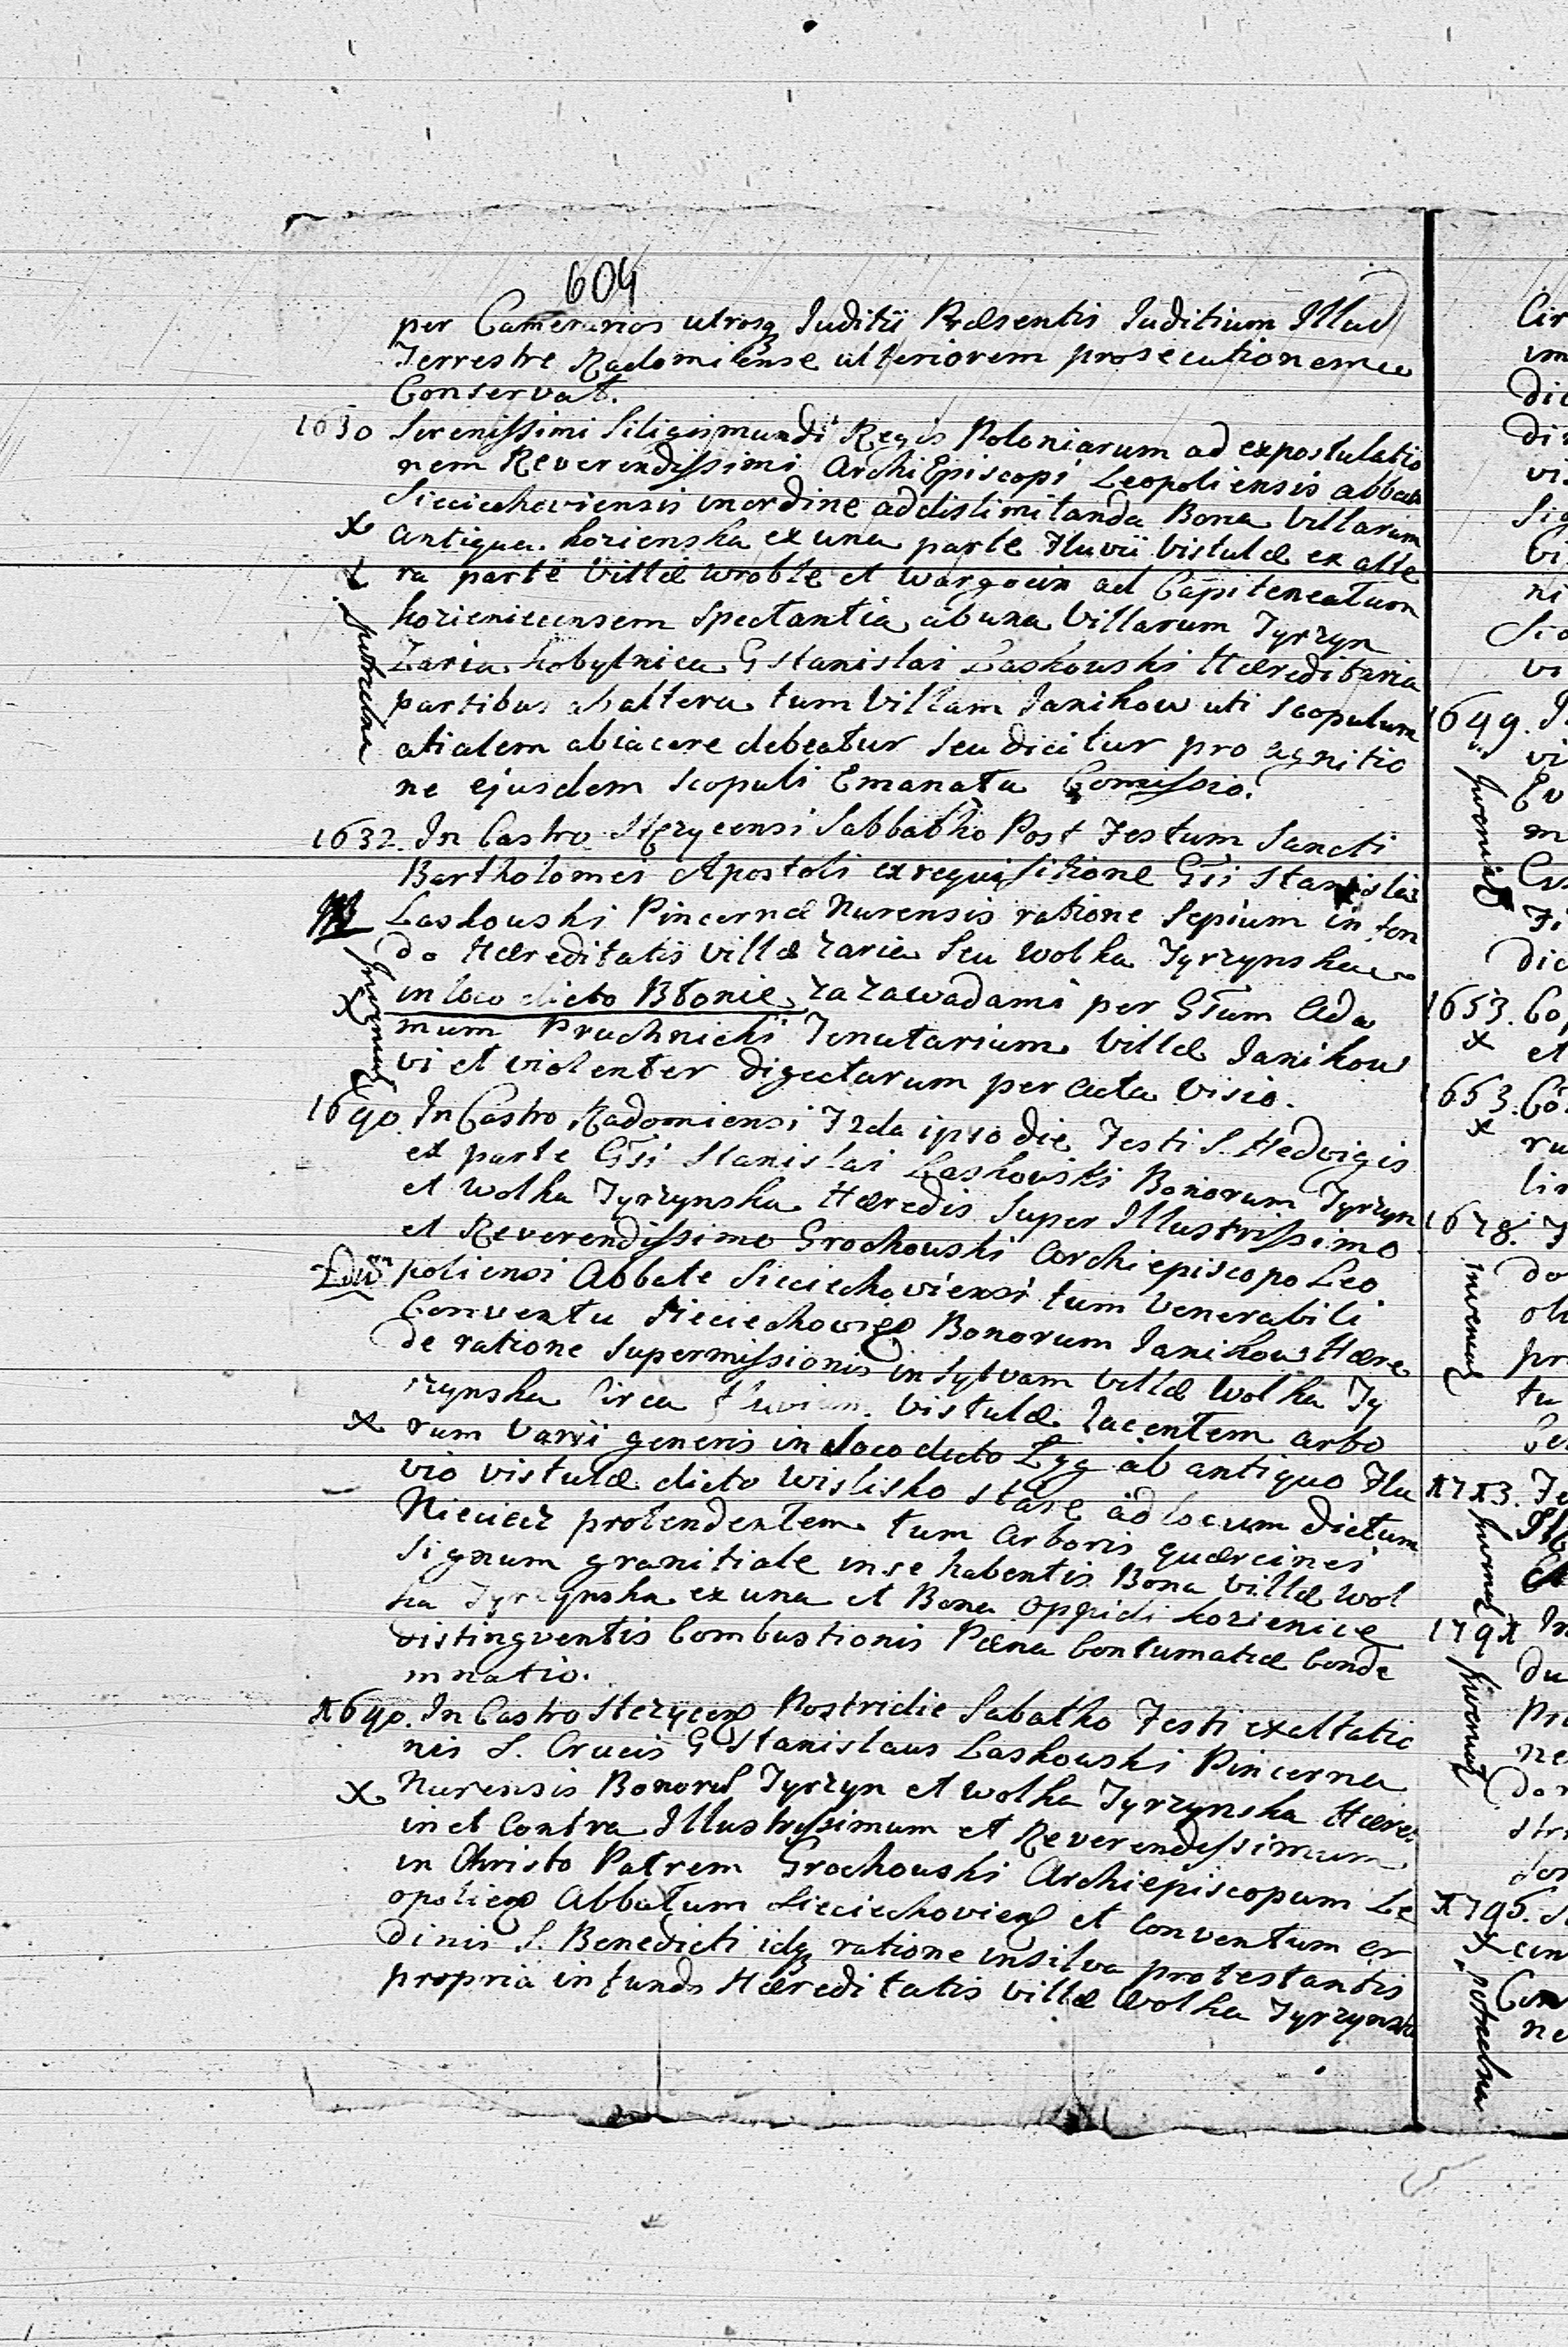 604
per Camerarios utrosq Juditii Præsentis Juditium Illud
Terrestre Radomilense ulteriorem prosecutionem
Conservat.
1630 Serenissimi Siligismundi Regis Poloniarum ad expostulatio
nem Reverendissimi ArchiEpiscopi Leopoliensis abbatis
Sieciechoviensis in ordine addislimitanda Bona Villarum
x antiqua. Kozienska ex una parte Fluvii Vistulæ ex alte
ra parte Villæ Wroble et Wargocin ad Capiteneatum
Kozienicensem Spectantia ab una Villarum Tyrzyn
Zaria Kobylnica G Stanislai Laskowski Hæreditaria
partibus ab altera tum Villam Janikow uti Scopulum
atialem abiacere debeatur Seu dicitur pro agnitio
ne ejusdem Scopuli Emanata Comissio.
potrzebna
1632. In Castro Stezycensi Sabbatho Post Festum Sancti
Bartholomei Apostoli ex requisitione Gsi Stanislai
Laskowski Pincernæ Nurensis ratione Sepium in fon
do Hæreditatis Villæ Zaria Seu Wolka Tyrzynska
x in loco dicto Błonie za zawadami per Gsum Ada
mum Pruchnicki Tenutarium Villæ Janikow
vi et violenter digectarum per acta Visio.
1640. In Castro Radomiensi Frda ipso die Festi S. Hedvigis
ex parte Gsi Stanislai Laskowski Bonorum Tyrzyn
et Wolka Tyrzynska Hæredis Super Illustrissimo
et Reverendissimo Grochowski Archiepiscopo Leo
poliensi Abbate Sieciechoviensi tum Venerabili
Conventu Sieciechowień Bonorum Janikow Hære
de ratione Supermissionis in Sylvam Villæ Wolka Ty
rzynska Circa fluvium Vistulæ Jacentem arbo
x rum Varii generis in loco dicto Łęg ab antiquo Flu
vio Vistulæ dicto Wislisko stare ad locum dictum
Niecicz protendentem tum arboris quærcinei
Signum granitiale in se habentis Bona Villæ Wol
ka Tyrzynska ex una et Bona Oppidi Kozienice
distingventis Combustionis Pæna Contumatiæ Conde
mnatio.
1640. In Castro Stezyceń Postridie Sabatho Festi exaltatio
nis S. Crucis G Stanislaus Laskowski Pincerna
x Nurensis Bonorū Tyrzyn et Wolka Tyrzynska Hæres
in et Contra Illustrissimum et Reverendissimum
in Christo Patrem Grochowski Archiepiscopum Le
opolień Abbatum Sieciechovień et Conventum or
dinis S. Benedicti idq ratione in silva protestantis
propria in fundo Hæreditatis Villæ Wolka Tyrzynska
1649.
1653.
x
1653.
x
1678.
1713.
1791
1795.
potrzebna